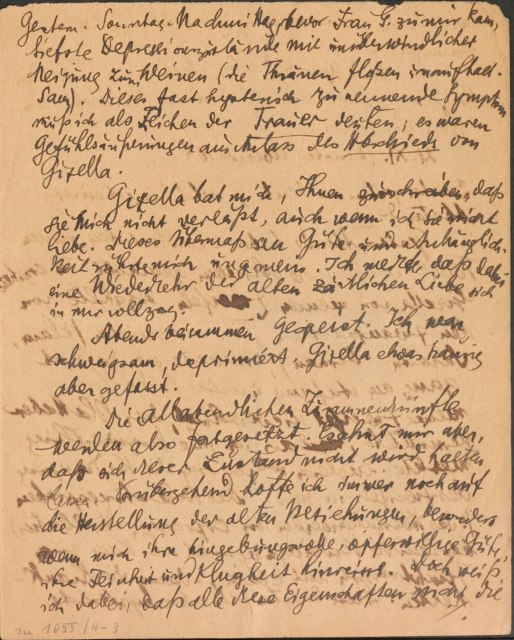 Gestern, Sonntag-Nachmittag, bevor Frau G. zu mir kam,
tiefste Depressionszustände mit unüberwindlicher
Neigung zum Weinen (die Thränen flossen unaufhalt-
sam). Dieses fast hysterisch zu nennende Symptom
muß ich als Zeichen der Trauer deuten; es waren
Gefühlsäußerungen aus Anlass des Abschieds von
Gisella.
Gisella bat mich, Ihnen zu schreiben, daß
sie mich nicht verläßt, auch wenn ich sie nicht
liebe. Dieses Übermaß an Güte und Anhänglich-
keit rührte mich ungemein. Ich merkte, daß dabei
eine Wiederkehr der alten zärtlichen Liebe sich
in mir vollzog.
Abends beisammen gespeist. Ich war
schweigsam, deprimiert. Gisella etwas traurig
aber gefasst.
Die allabendlichen Zusammenkünfte
werden also fortgesetzt. Es ahnt mir aber,
daß sich dieser Zustand nicht wird halten
lassen. Vorübergehend hoffe ich immer noch auf
die Herstellung der alten Beziehungen, besonders
wenn mich ihre hingebungsvolle, opferwillige Güte,
ihre Feinheit und Klugheit hinreisst. Doch weiß
ich dabei, daß alle diese Eigenschaften nicht die
1055/4-3